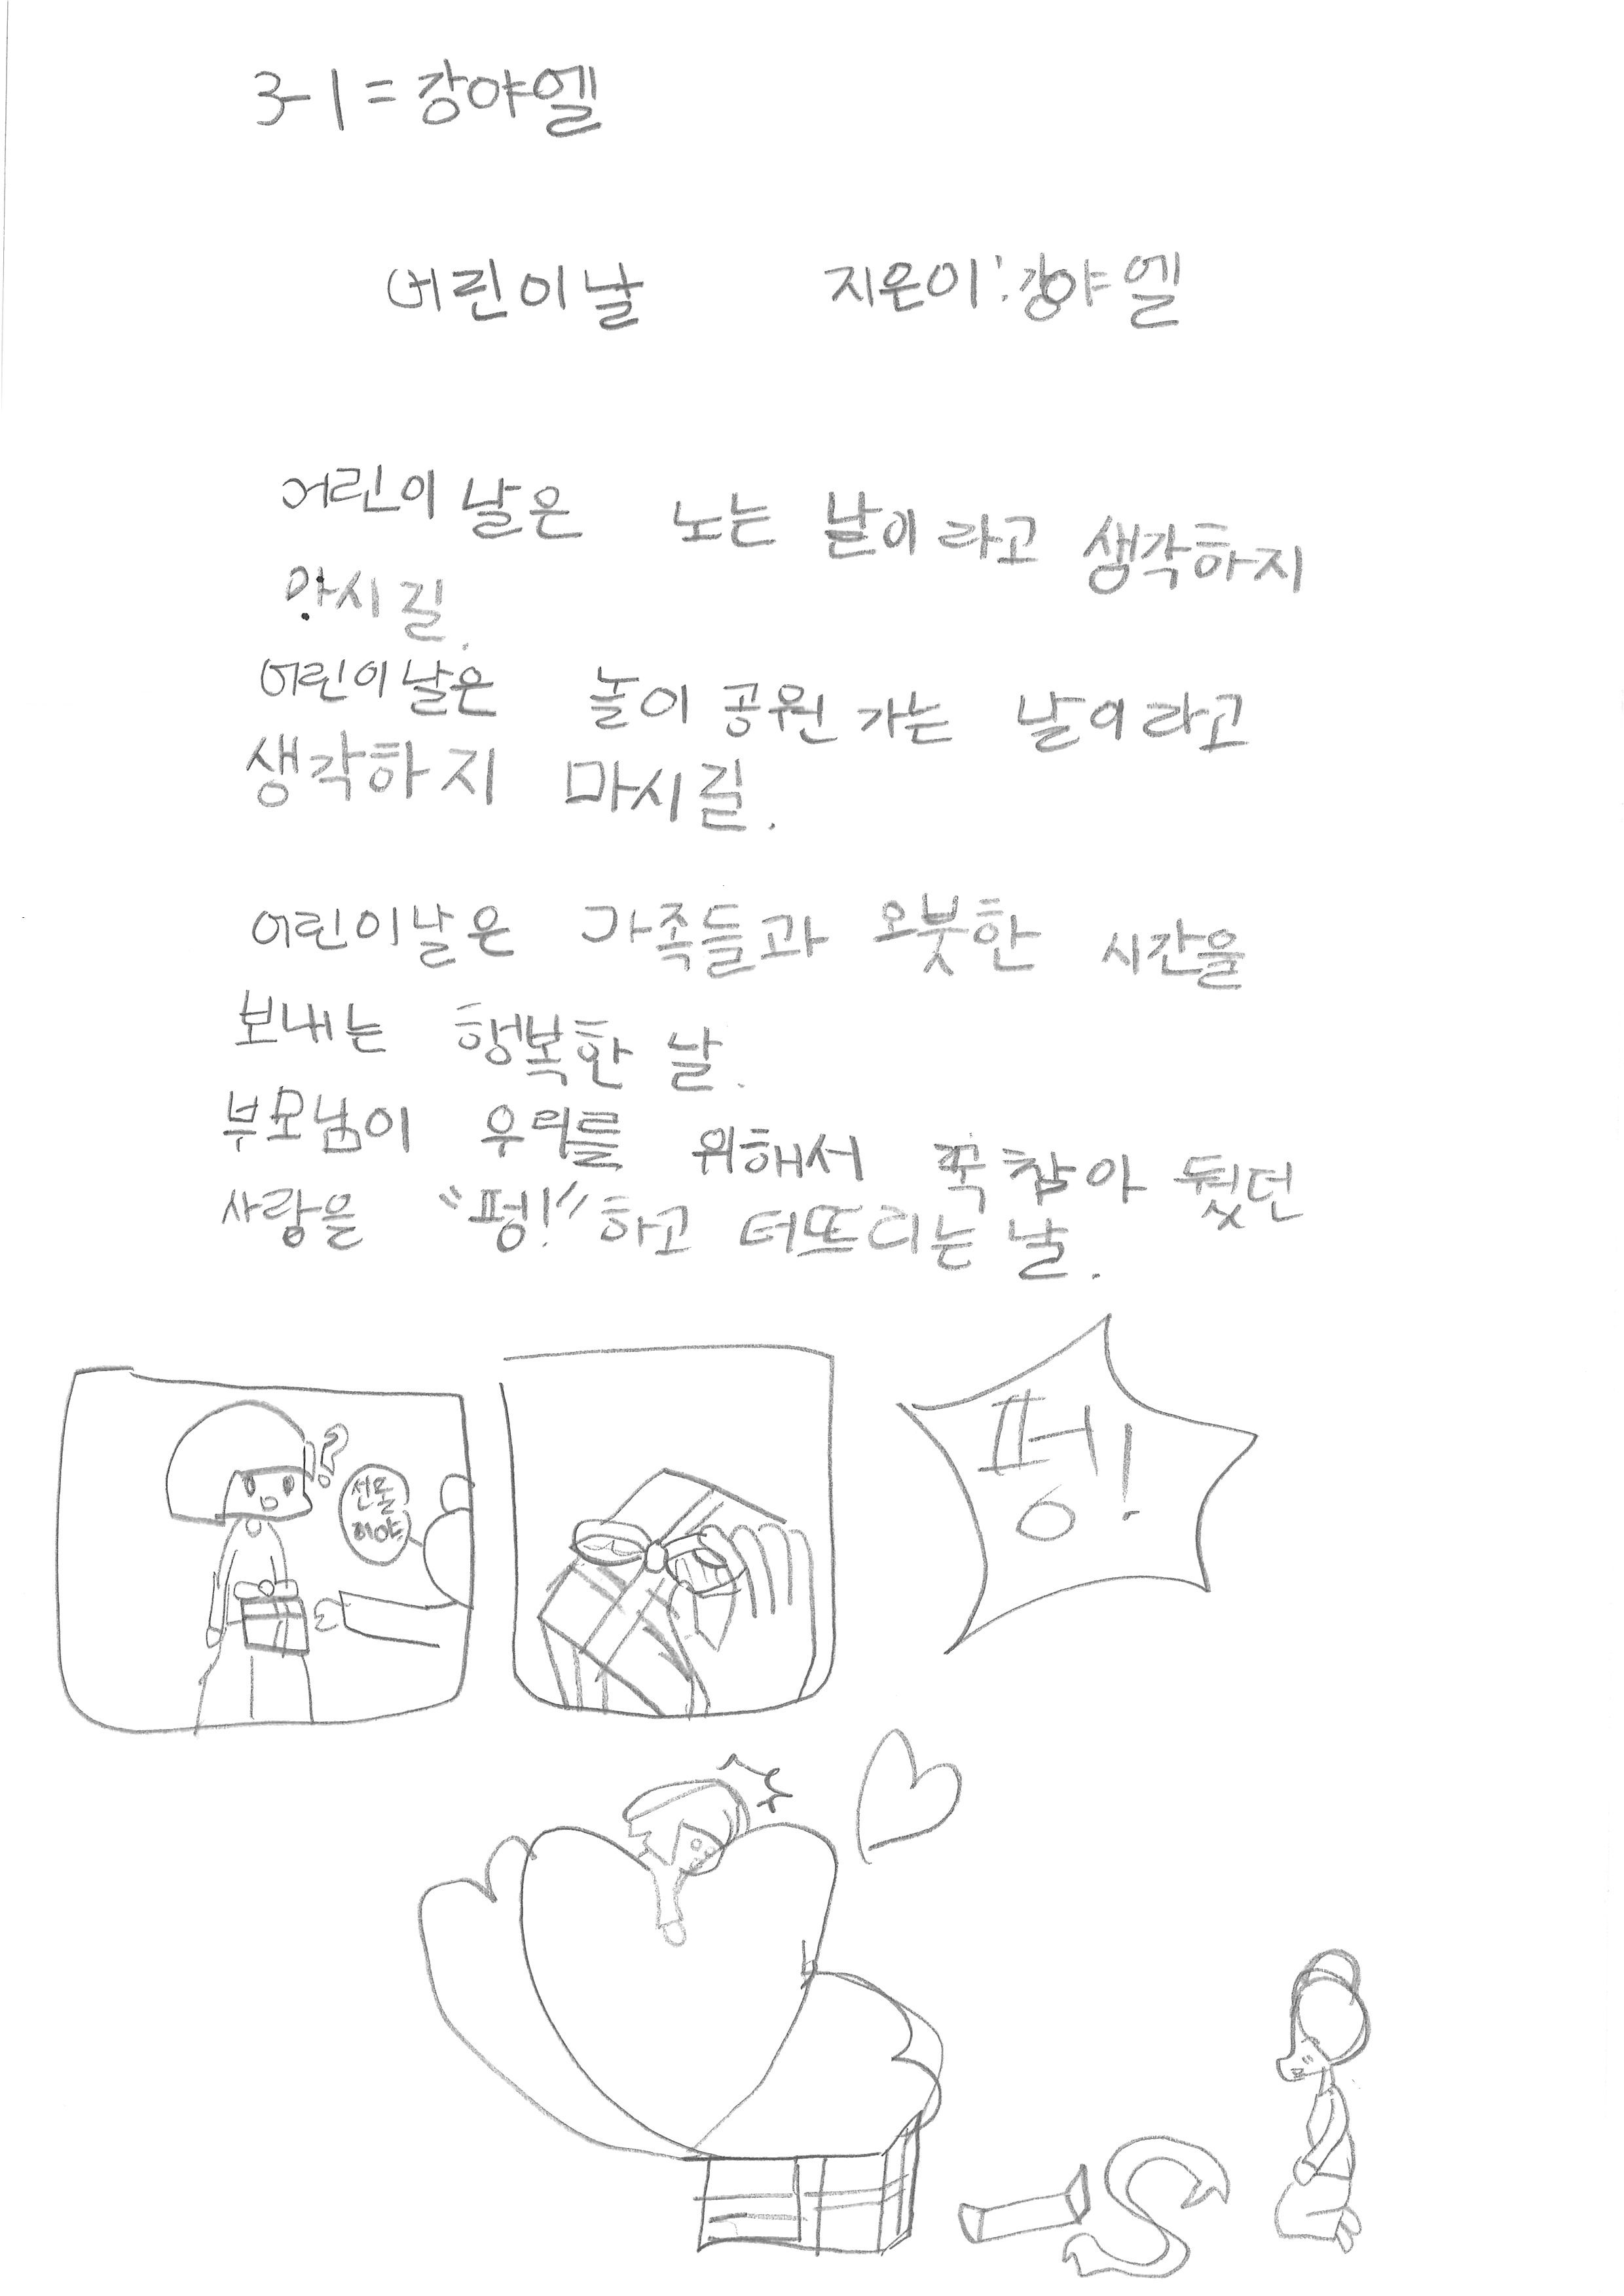 3-1 = 강야엘
어린이날 지은이 : 강야엘
어린이 날은 노는 날이라고 생각하지
마시길.
어린이날은 놀이 공원 가는 날이라고
생각하지 마시길.
어린이날은 가족들과 오붓한 시간을
보내는 행복한 날.
부모님이 우리를 위해서 꾹 참아 뒀던
사랑을 "펑!" 하고 터뜨리는 날.
선물
이야
펑!